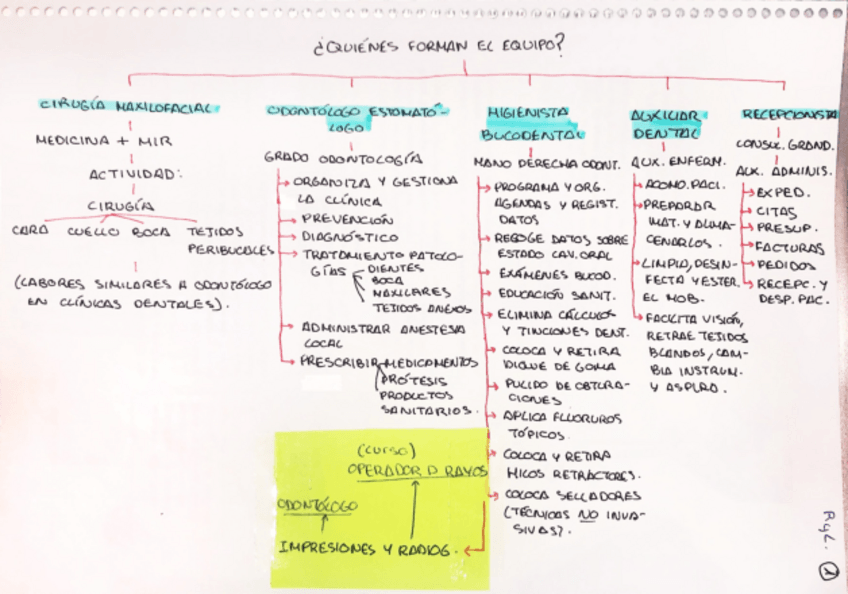 ¿QUIÉNES FORMAN EL EQUIPO?
CIRUGÍA MAXILOFACIAL
MEDICINA + MIR
ACTIVIDAD:
CIRUGÍA
CARA CUELLO BOCA TEJIDOS
PERIBUCALES
(LABORES SIMILARES A ODONTÓLOGO
EN CLÍNICAS DENTALES).
ODONTÓLOGO ESTOMATÓ-
LOGO
GRADO ODONTOLOGÍA
ORGANIZA Y GESTIONA
LA CLÍNICA
PREVENCIÓN
DIAGNÓSTICO
TRATAMIENTO PATOLO-
GÍAS DIENTES
BOCA
MAXILARES
TEJIDOS ANEXOS
ADMINISTRAR ANESTESIA
LOCAL
PRESCRIBIR MEDICAMENTOS
PRÓTESIS
PRODUCTOS
SANITARIOS.
HIGIENISTA
BUCODENTAL
MANO DERECHA ODONT.
PROGRAMA Y ORG.
AGENDAS Y REGIST.
DATOS
RECOGE DATOS SOBRE
ESTADO CAV. ORAL
EXÁMENES BUCOD.
EDUCACIÓN SANIT.
ELIMINA CÁLCULOS
Y TINCIONES DENT.
COLOCA Y RETIRA
DIQUE DE GOMA
PULIDO DE OBTURA-
CIONES
APLICA FLUORUROS
TÓPICOS.
COLOCA Y RETIRA
HILOS RETRACTORES.
COLOCA SELLADORES
(TÉCNICAS NO INVA-
SIVAS).
AUXILIAR
DENTAL
AUX. ENFERM.
ACOMO. PACI.
PREPARAR
MAT. Y ALMA-
CENARLOS.
LIMPIA, DESIN-
FECTA Y ESTER.
EL MOB.
FACILITA VISIÓN,
RETRAE TEJIDOS
BLANDOS, CAM-
BIA INSTRUM.
Y ASPIRA.
RECEPCIONISTA
CONSUL. GRAND.
AUX. ADMINIS.
EXPED.
CITAS
PRESUP.
FACTURAS
PEDIDOS
RECEPC. Y
DESP. PAC.
(CURSO)
OPERADOR D RAYOS
ODONTÓLOGO
IMPRESIONES Y RADIOG.
1